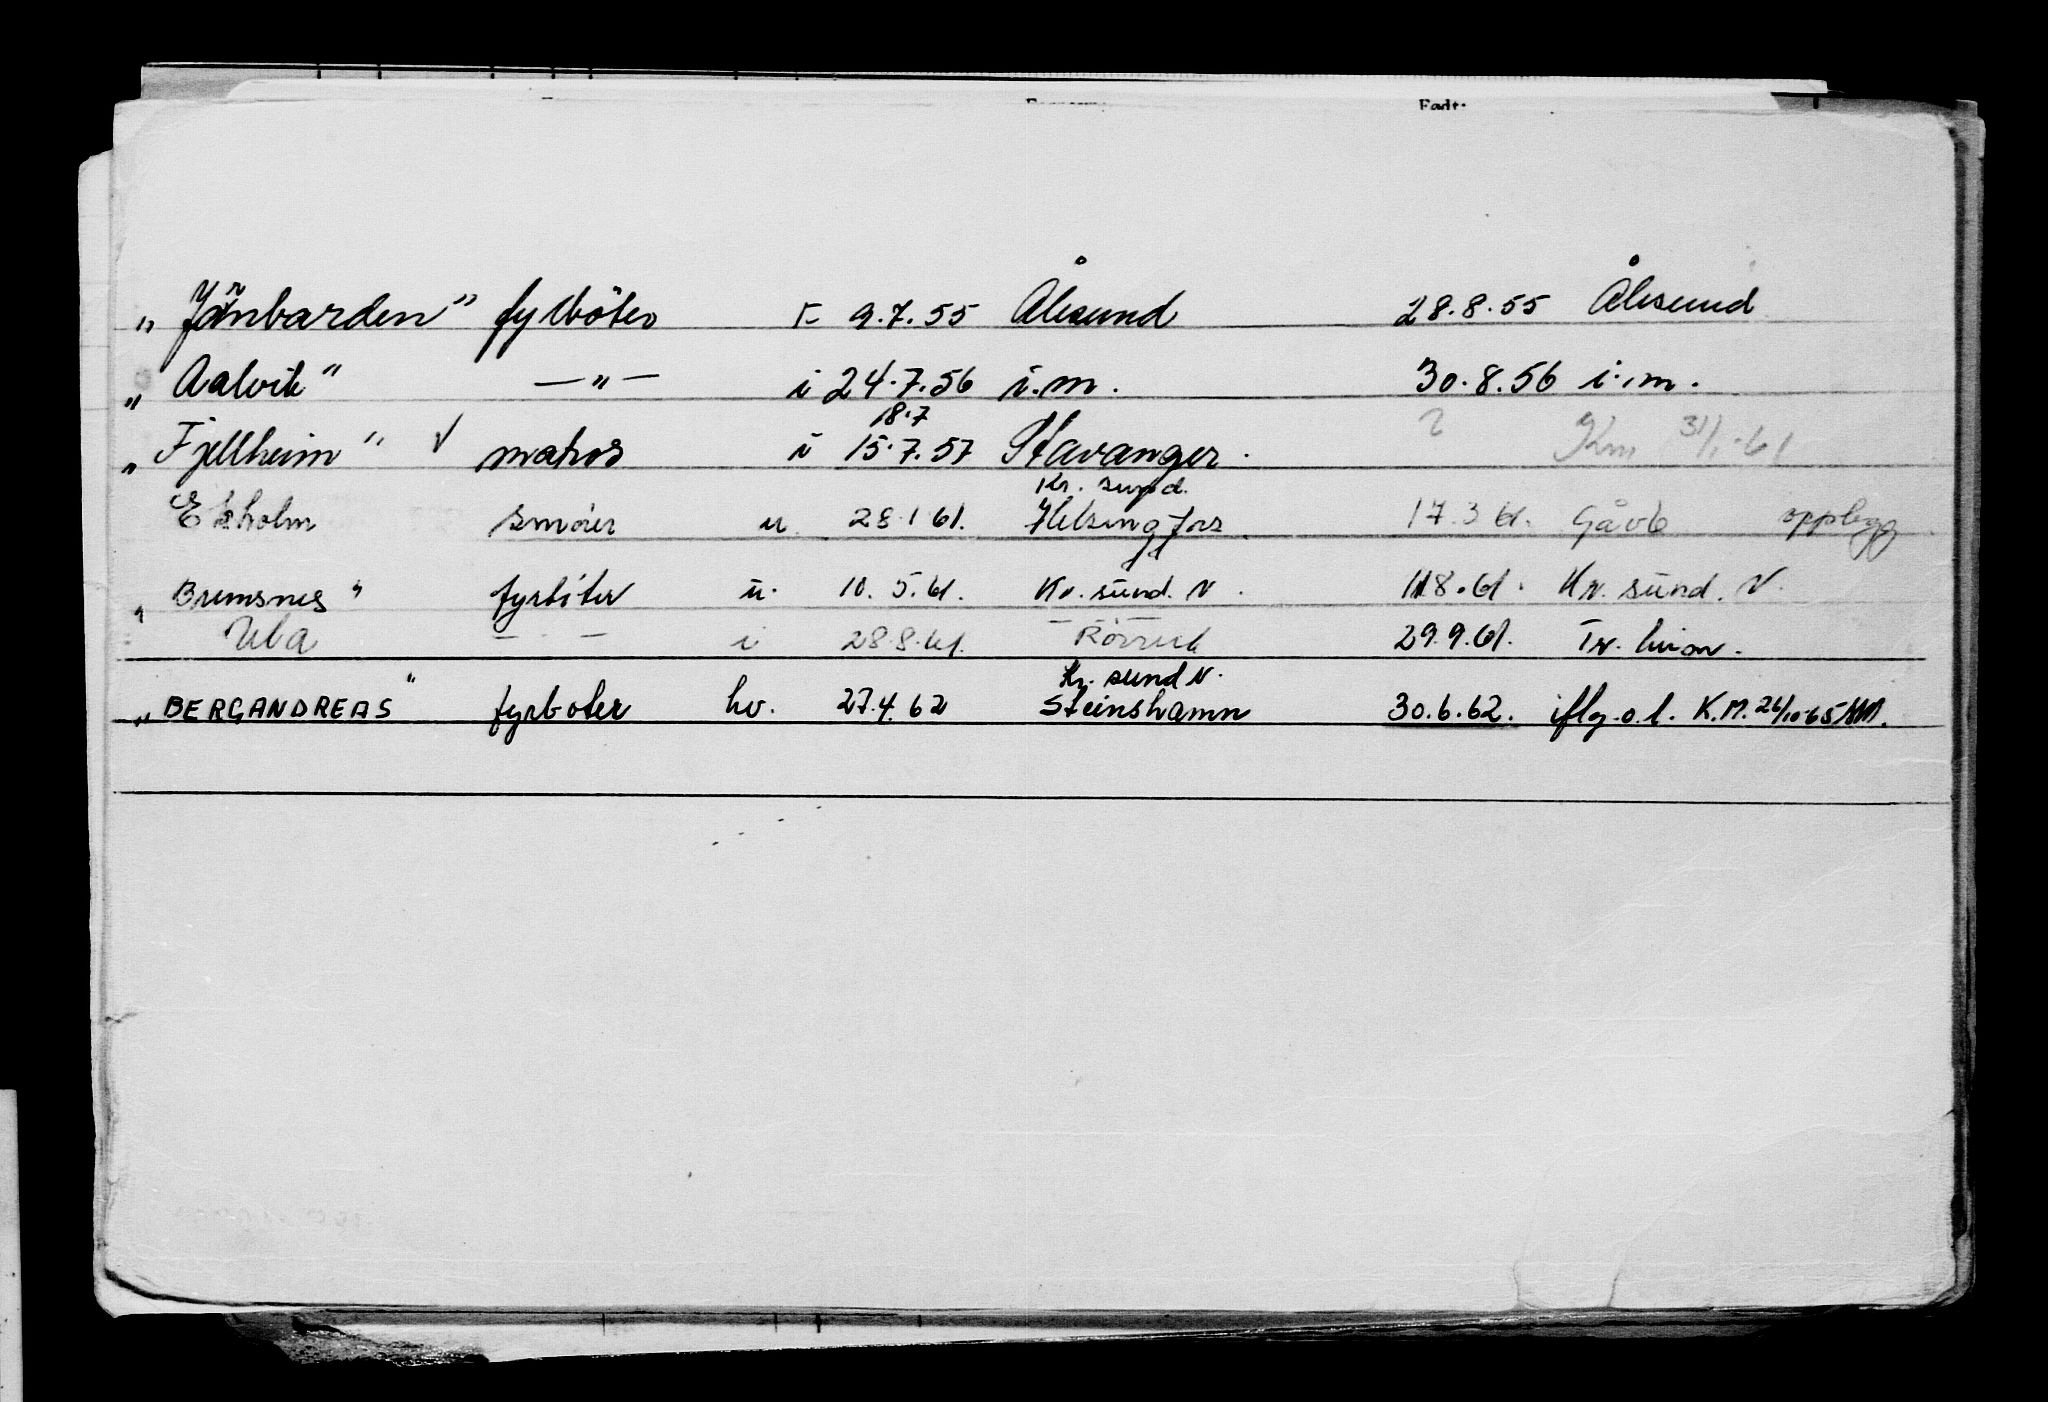 Født:
„ Jönbarden" fyrböter F 9.7.55 Ålesund 28.8.55 Ålesund
„ Aalvik" — „ — i 24.7.56 i.m. 30.8.56 i.m.
18.7
„ Fjellheim" √ matros i 15.7.57 Stavanger. ? Km 31/1-61
Kr. sund.
Ekholm smører u 28.1 61. Helsingfors. 17.3 61. Gävle opplegg
„ Bremsnes" fyrböter u. 10.5.61. Kr. sund. N. 118.61. Kr. sund. N.
Ula — — i 28.8.61. Rörvik 29.9.61. Tr. heim.
Kr. sund N.
„ BERGANDREAS" fyrbøter hv. 27.4.62 Steinshamn 30.6.62. iflg. o.l. K.M. 26/10-65